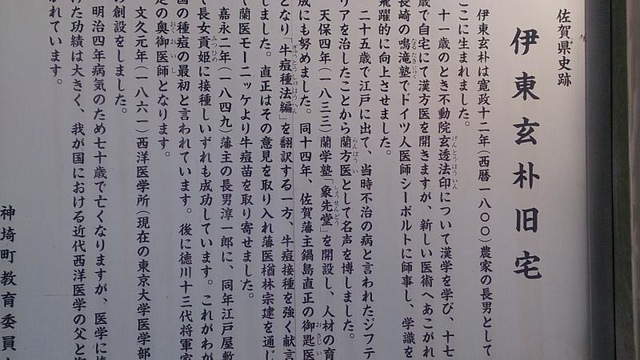 佐賀県史跡
伊東玄朴旧宅
伊東玄朴は寛政十二年(西暦一八〇〇)農家の長男として
ここに生まれました。
十一歳のとき不動院玄透法印について漢学を学び、十七
歳で自宅にて漢方医を開きますが、新しい医術へあこがれ
長崎の鳴滝塾でドイツ人医師シーボルトに師事し、学識を
飛躍的に向上させました。
二十五歳で江戸に出て、当時不治の病と言われたジフテ
リアを治したことから蘭方医として名声を博しました。
天保四年(一八三三)蘭学塾「象先堂」を開設し、人材の育
成にも努めました。同十四年、佐賀藩主鍋島直正の御匙医
となり「牛痘種法編」を翻訳する一方、牛痘接種を強く献言
しました。直正はその意見を取り入れ藩医楢林宗建を通じ
蘭医モーニッケより牛痘苗を取り寄せました。
嘉永二年(一八四九)藩主の長男淳一郎に、同年江戸屋敷
で長女貢姫に接種しいずれも成功しています。これがわが
国の種痘の最初と言われています。後に徳川十三代将軍家
定の奥御医師となります。
文久元年(一八六一)西洋医学所(現在の東京大学医学部
の創設をしました。
明治四年病気のため七十歳で亡くなりますが、医学に
た功績は大きく、我が国における近代西洋医学の父と
れています。
神埼町教育委員